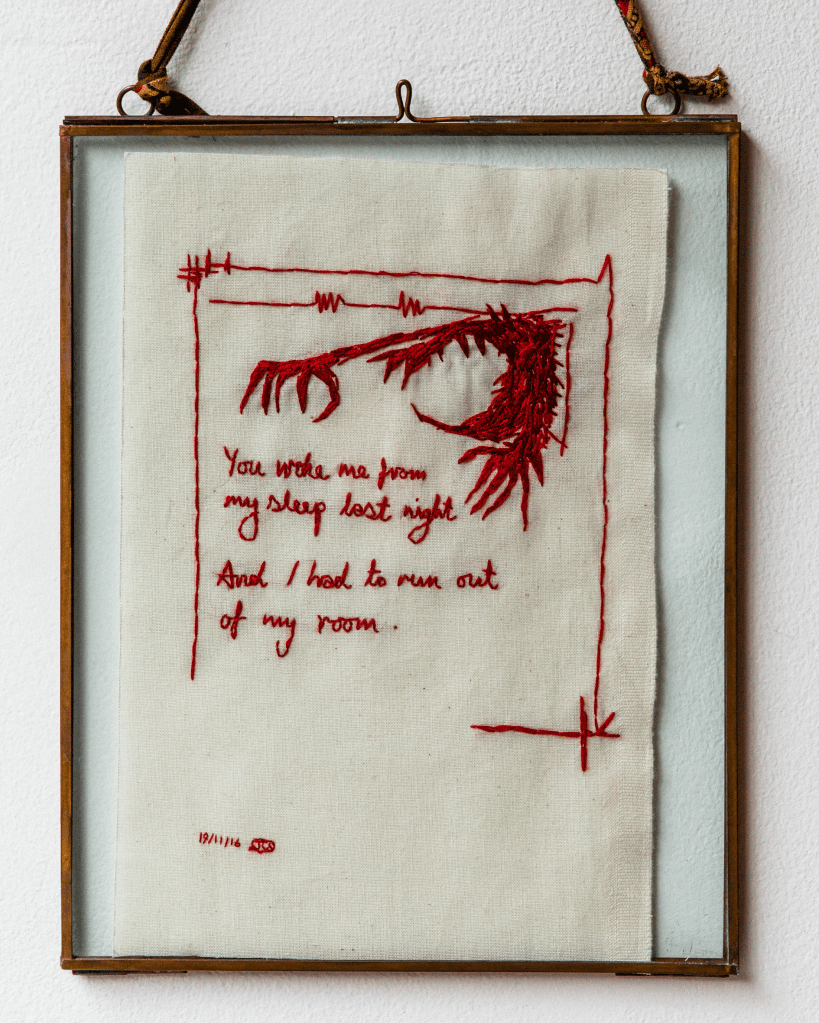 You woke me from
my sleep last night
And I had to run out
of my room.
19/11/16